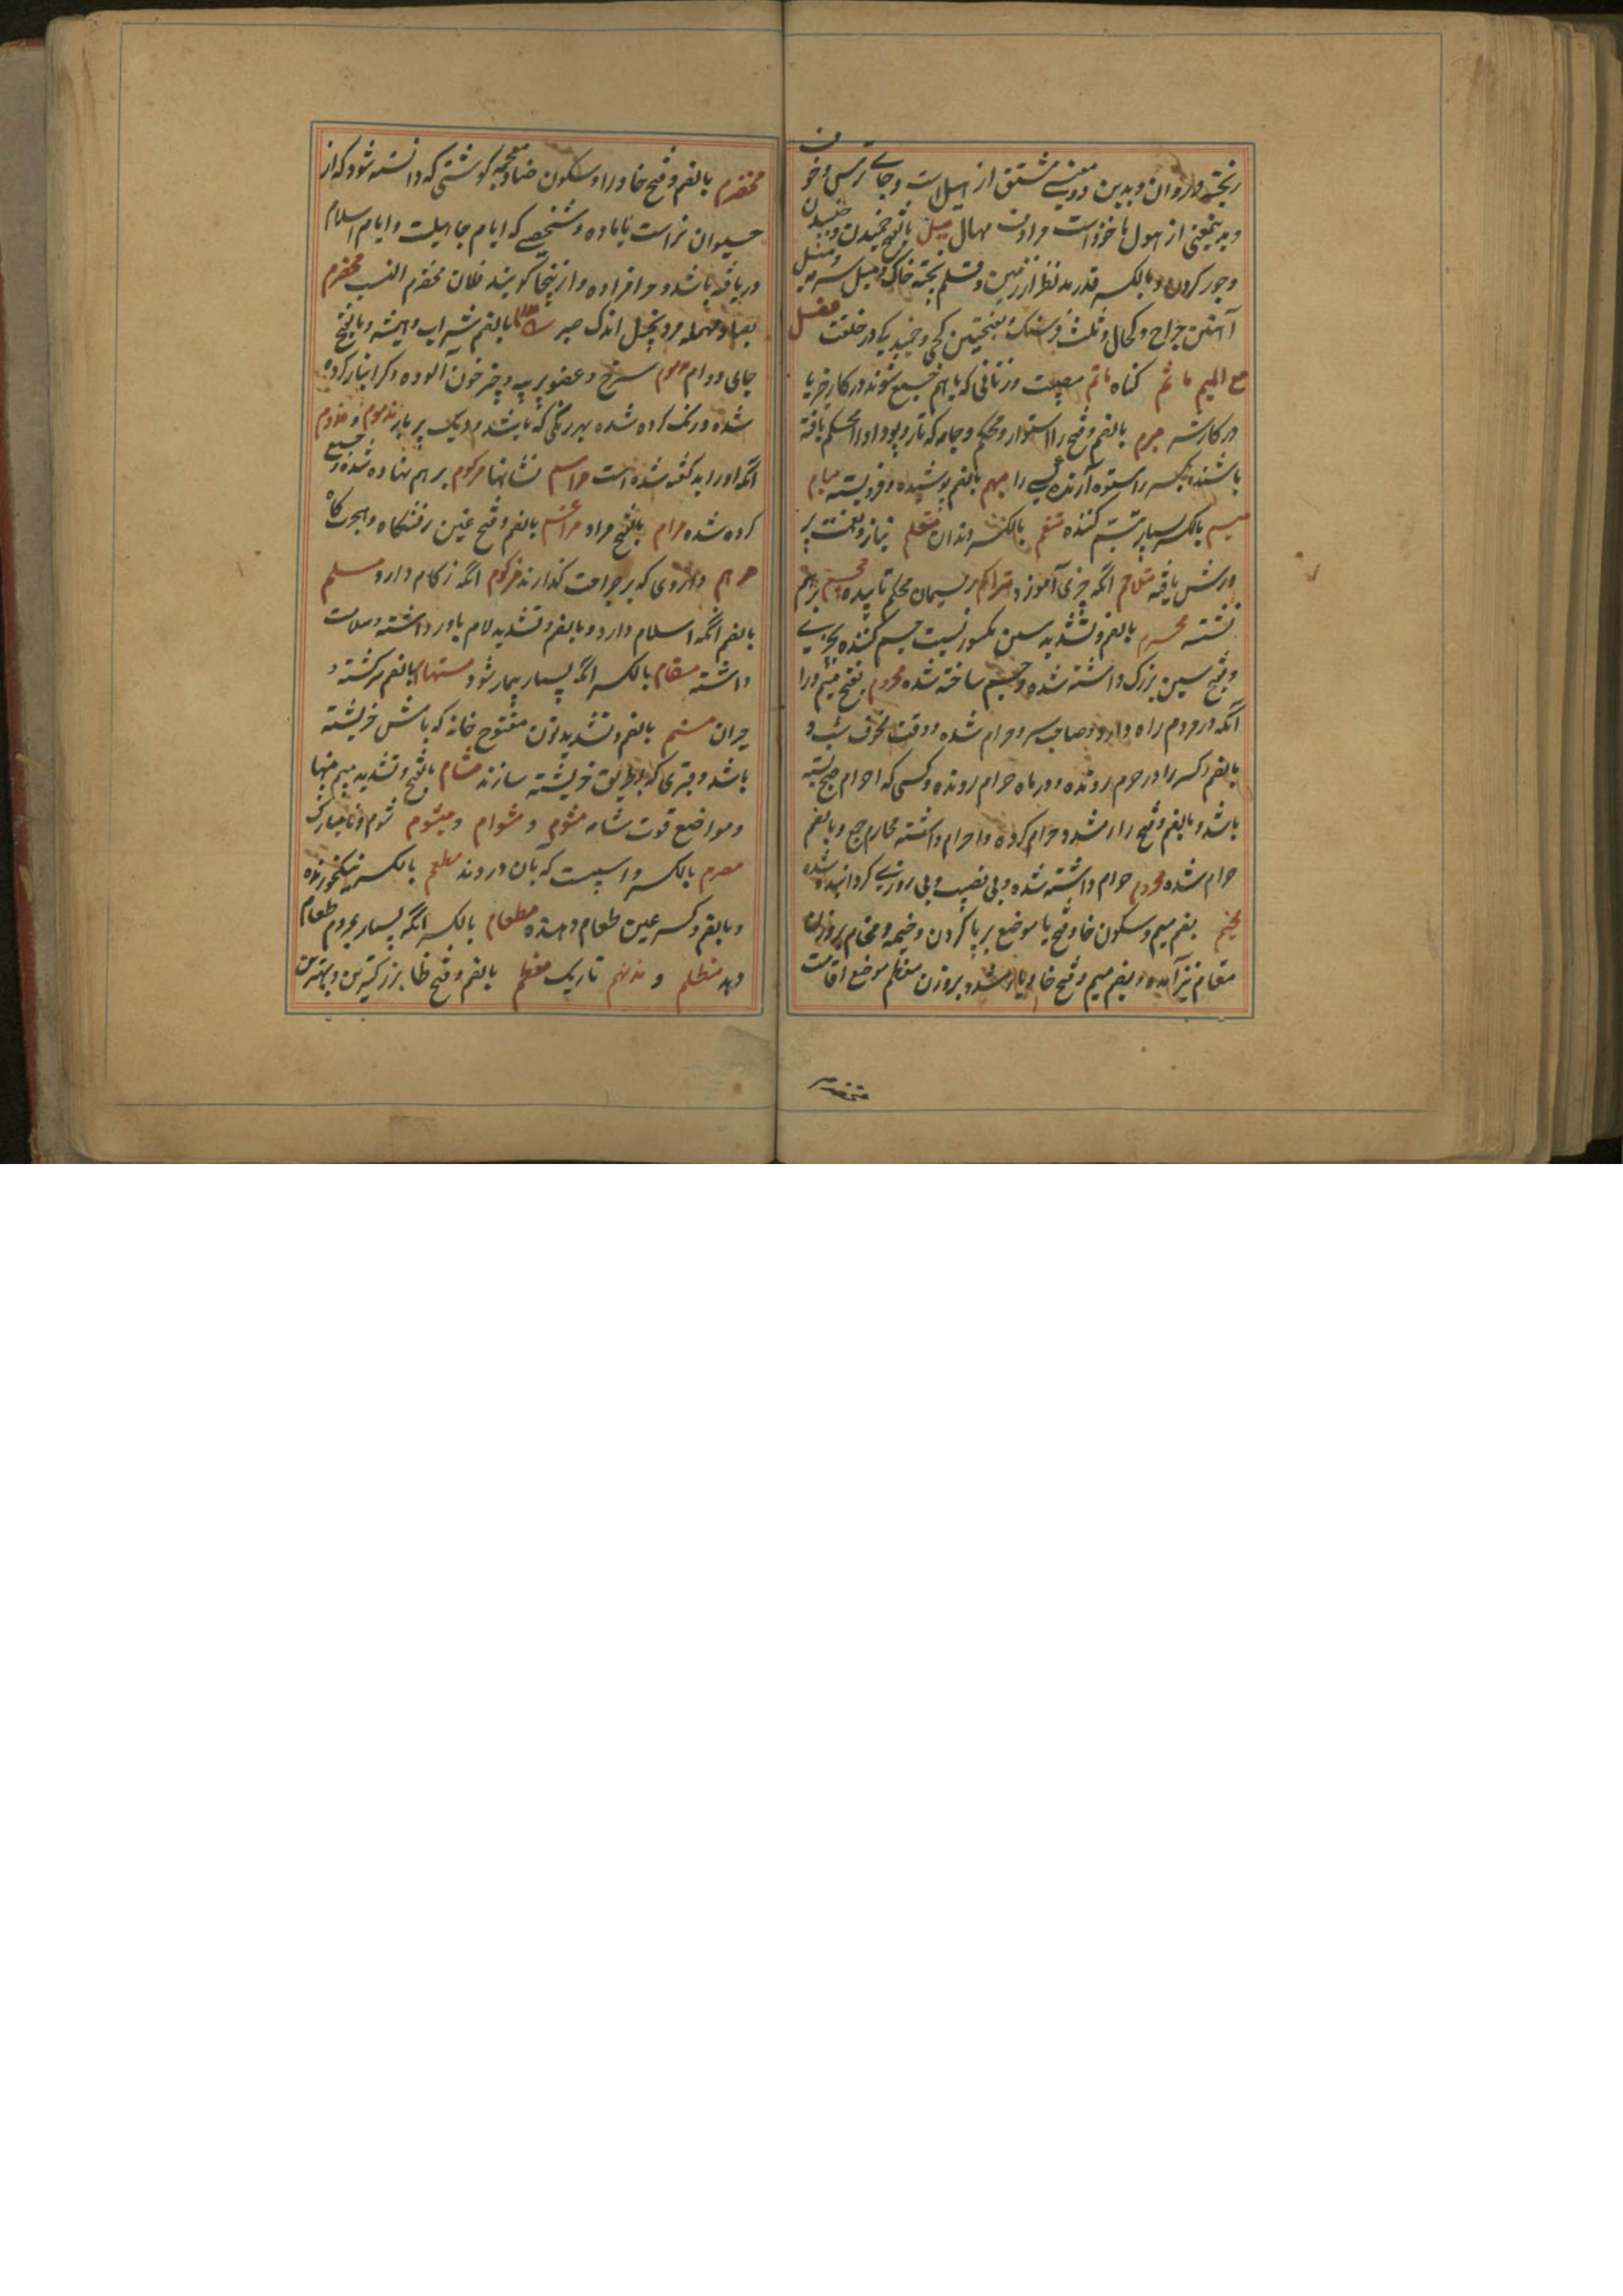 ریخته و روان و بدین دو معنی مشتق از اسیلان است و جای ترس و خوف
و بدینمعنی از هول ماخوذ است مرادف مهال میل بالفتح خمیدن و چسپیدن
و جور کردن و بالکسر قدر مد نظر از زمین و قلم پخته خاک و میل سرمه و میل
آهنین جراح و کحال و ثلث فرسنگ و بفتحتین کجی و خمیدگی در خلقت فصل
مع المیم ماثم گناه ماتم مصیبت و زنانی که باهم جمع شوند در کار خیر یا
در کار شر مبرم بالضم و فتح را استوار و محکم و جامه که تار و پود او را محکم بافته
باشند و بکسر را ستوه آرنده کسی را مبهم بالضم پوشیده و فروبسته
مبسم بالکسر بسیار تبسم کننده بالکسر دندان متنعم بناز و نعمت پر
ورش یافته متعلم انکه چیزی آموزد ریسمان محکم تابیده برهم
نشسته مجسم بالضم و تشدید سین مکسور نسبت جسم کننده بچیزی
و فتح سین بزرگ داشته شده و جسیم ساخته شده محروم بفتح میم و را
انکه در مردم راه دارد و صاحب سر و حرام شده و وقت مخوف شب و
بالضم و کسر را در حرم رونده و در ماه حرام رونده و کسی که احرام حج بسته
باشد و بالضم و فتح را مشدد حرام کرده و احرام داشته محارم جمع و بالضم
حرام شده محروم حرام داشته شده و بی نصیب و بی روزی گردانیده شده
مخیم بضم میم و سکون خا و فتح یا موضع برپا کردن و خیمه و مخام بروزن
مقام نیز آمده و بضم میم و فتح خا و یا مشدد بروزن معظم موضع اقامت
مخضرم بالضم و فتح خا و را و سکون ضاد معجمه گوشتی که دانسته نشود که از
حیوان نر است یا ماده و شخصی که ایام جاهلیت و ایام اسلام
دریافته باشد و حرافزاده و از ینجا گویند فلان مخضرم النسب مخضرم
بصاد مهمله مرد بخیل اندک خیر مدام بالضم شراب و همیشه و بالفتح
جای دوام سرخ و عضو پر پیه و چیز خون آلوده و کرانبار کرده
شده و رنگ کرده شده بهر رنگی که باشد و دیگ پر بار مذموم و مذمم
انکه او را بد گفته شده است مراسم نشانها مرکوم برهم نهاده شده و جمع
کرده شده مرام بالفتح مراد مراغم بالضم و فتح غین رفتنگاه و هجرت گاه
مرهم داروی که بر جراحت گذارند مزکوم انکه زکام دارد مسلم
بالضم انکه اسلام دارد و بالضم و تشدید لام باور داشته و سلامت
داشته مسقام بالکسر انکه بسیار بیمار شود مستهام بالضم سرگشته و
حیران مسنم بالضم و تشدید نون مفتوح خانه که باش خرپشته
باشد و قبری که بطریق خرپشته سازند مشام بالفتح و تشدید میم بینیها
و مواضع قوت شامه مشوم و مشوام و میشوم شوم و نامبارک
مصرم بالکسر داسیست که بآن دروند مطعم بالکسر نیکخورنده
و بالضم و کسر عین طعام دهنده مطعام بالکسر انکه بسیار بمردم طعام
دهد مظلم و مدلهم تاریک معظم بالضم و فتح ظا بزرگترین و بهترین